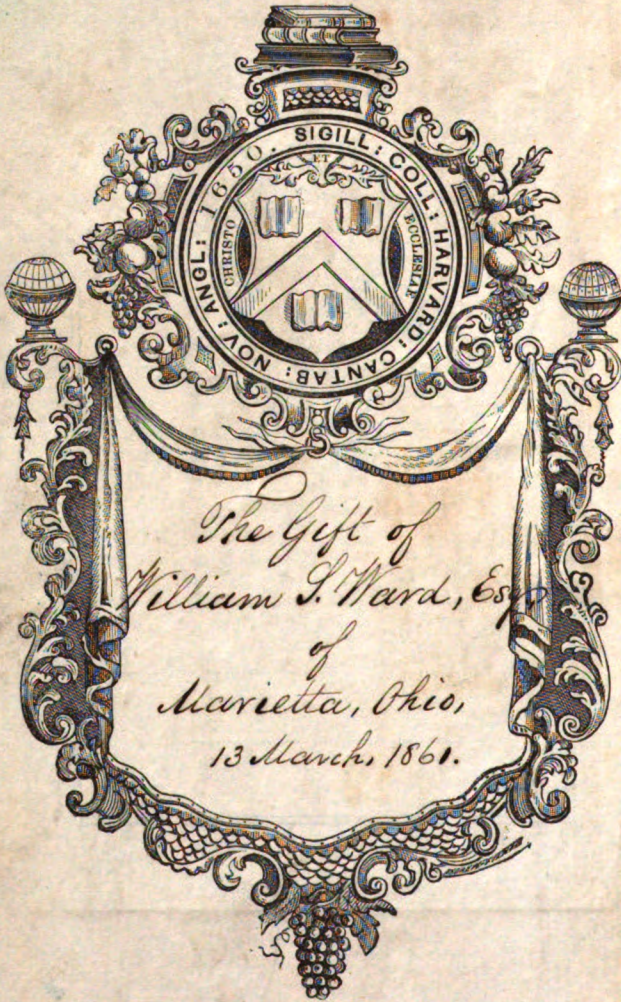 SIGILL: COLL: HARVARD: CANTAB: NOV: ANGL: 1650.
CHRISTO
ET
ECCLESIAE
The Gift of
William S. Ward, Esq.
of
Marietta, Ohio,
13 March, 1861.